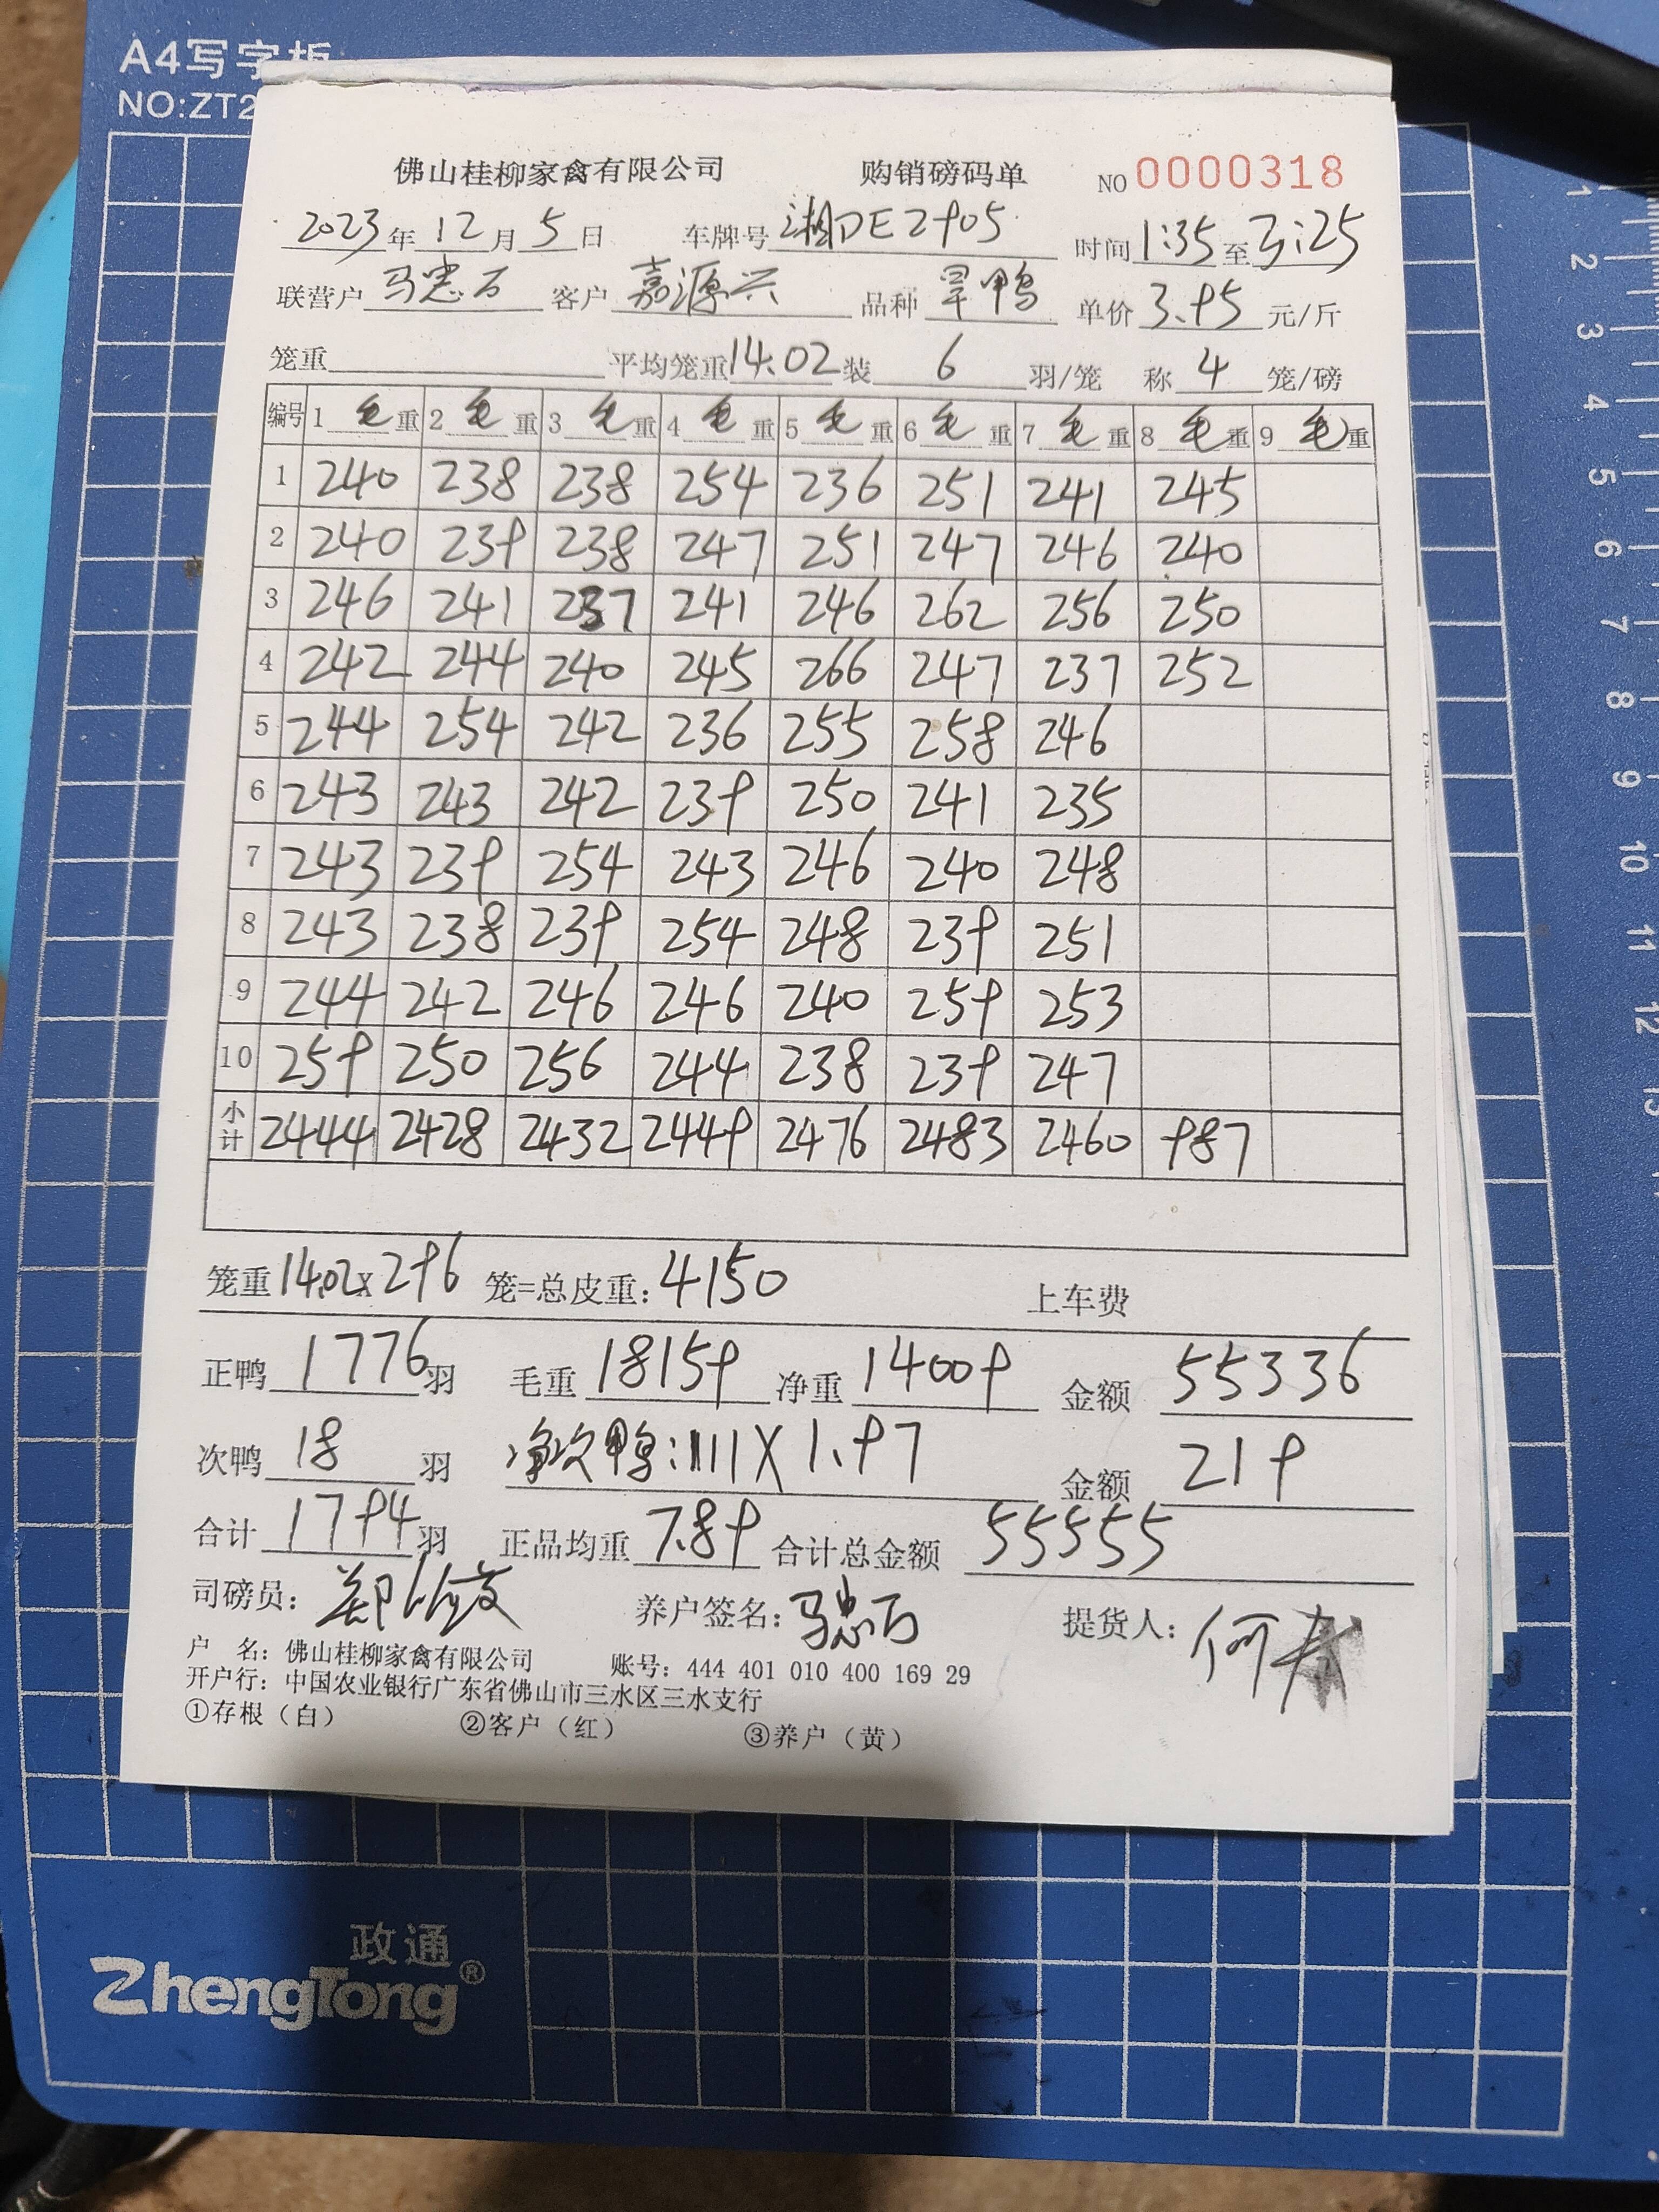 A4写字板
NO:ZT2
佛山桂柳家禽有限公司 购销磅码单 NO 0000318
2023年12月5日 车牌号 湘DE2905 时间 1:35 至 3:25
联营户 马忠万 客户 嘉源兴 品种 旱鸭 单价 3.95 元/斤
笼重 平均笼重 14.02 装 6 羽/笼 称 4 笼/磅
编号 1 毛重 2 毛重 3 毛重 4 毛重 5 毛重 6 毛重 7 毛重 8 毛重 9 毛重
1 240 238 238 254 236 251 241 245
2 240 239 238 247 251 247 246 240
3 246 241 237 241 246 262 256 250
4 242 244 240 245 266 247 237 252
5 244 254 242 236 255 258 246
6 243 243 242 239 250 241 235
7 243 239 254 243 246 240 248
8 243 238 239 254 248 239 251
9 244 242 246 246 240 259 253
10 259 250 256 244 238 239 247
小计 2444 2428 2432 2449 2476 2483 2460 987
笼重 14.02x296 笼=总皮重: 4150 上车费
正鸭 1776 羽 毛重 18159 净重 14009 金额 55336
次鸭 18 羽 净次鸭: 111 X 1.97 金额 219
合计 1794 羽 正品均重 7.89 合计总金额 55555
司磅员: 郑 养户签名: 马忠万 提货人: 何
户 名: 佛山桂柳家禽有限公司 账号: 444 401 010 400 169 29
开户行: 中国农业银行广东省佛山市三水区三水支行
①存根（白） ②客户（红） ③养户（黄）
政通
ZhengTong®
1
2
3
4
5
6
7
8
9
10
11
12
13